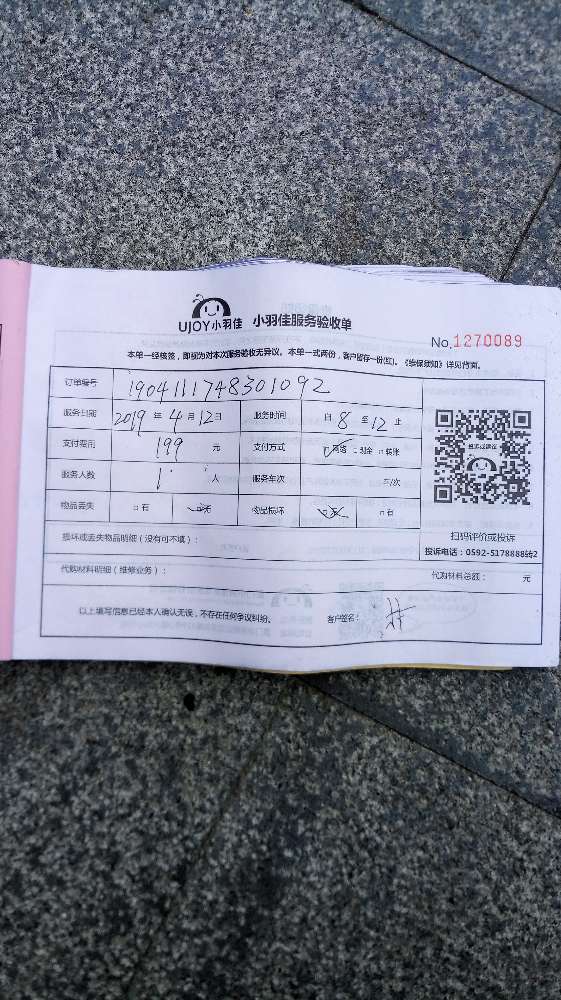 UJOY小羽佳 小羽佳服务验收单
No.1270089
本单一经核签，即视为对本次服务验收无异议。本单一式两份，客户留存一份(红)。《维保须知》详见背面。
订单编号 1904111748301092
服务日期 2019 年 4 月 12 日 服务时间 自 8 至 12 止
支付费用 199 元 支付方式 □网络 □现金 □转账
服务人数 1 人 服务车次 车/次
物品丢失 □有 □无 物品损坏 □无 □有
扫码评价或投诉
损坏或丢失物品明细（没有可不填）：
投诉电话：0592-5178888转2
代购材料明细（维修业务）： 代购材料总额： 元
以上填写信息已经本人确认无误，不存在任何争议纠纷。 客户签名：